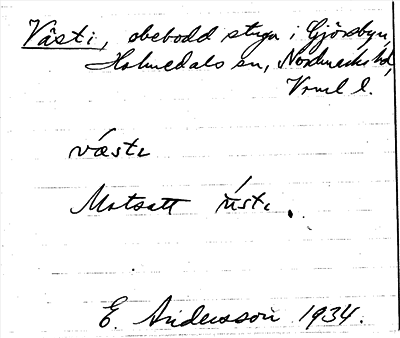 Västi, obebodd stuga i Gjörsbyn,
Holmedals sn, Nordmarks hd,
Vrml l.
västı
Motsatt ı́istı.
E. Andersson 1934.